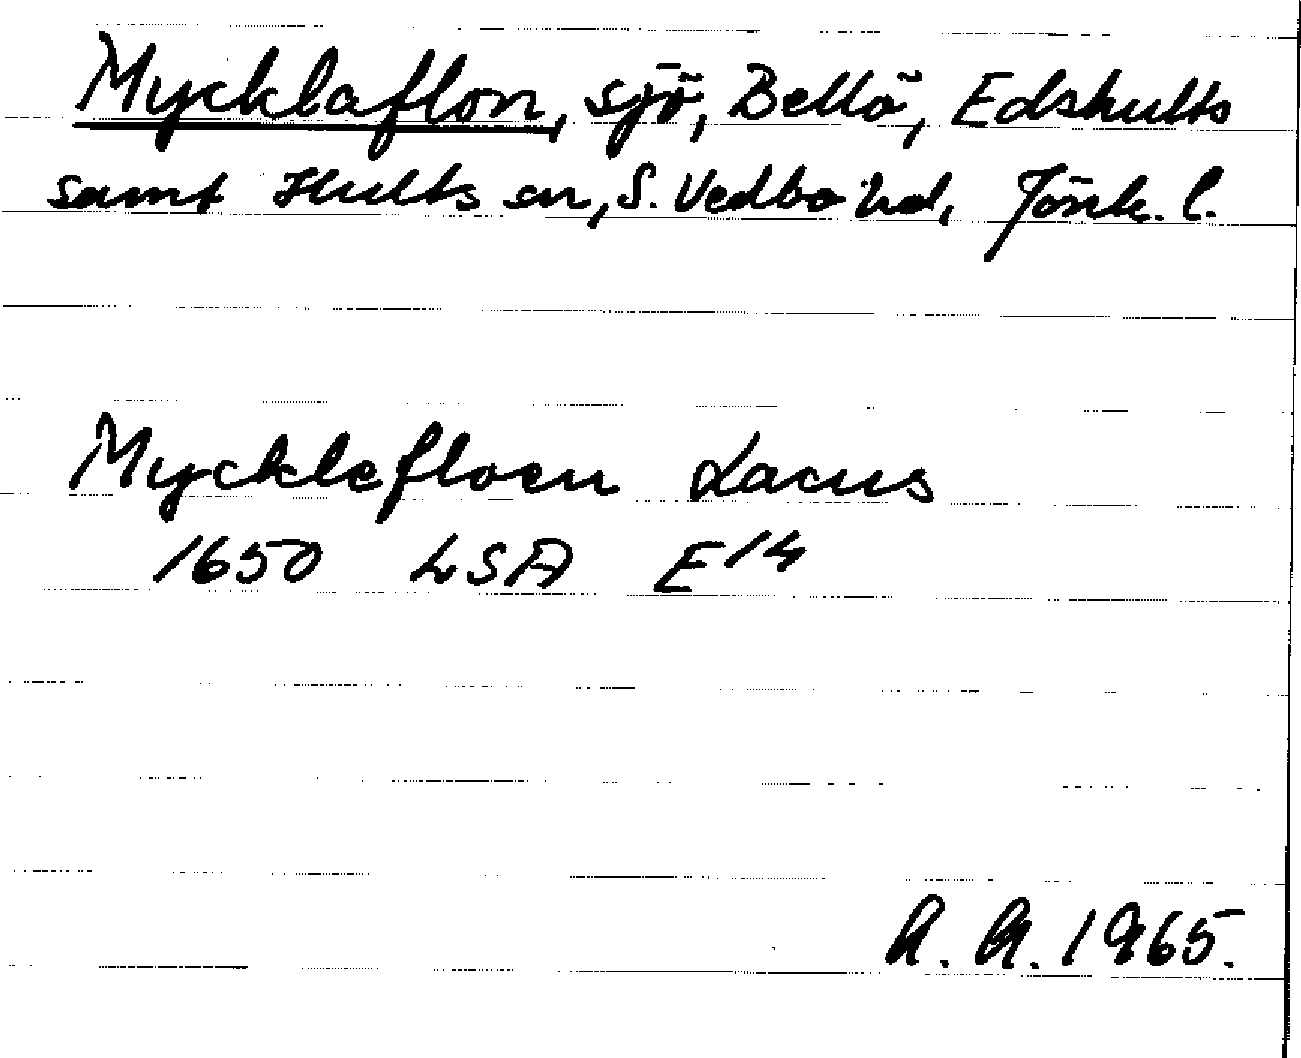 Mycklaflon, sjö, Bellö, Edshults
samt Hults sn, S. Vedbo hd, Jönk. l.
Mycklefloen Lacus
1650 LSA E14
A. A. 1965.